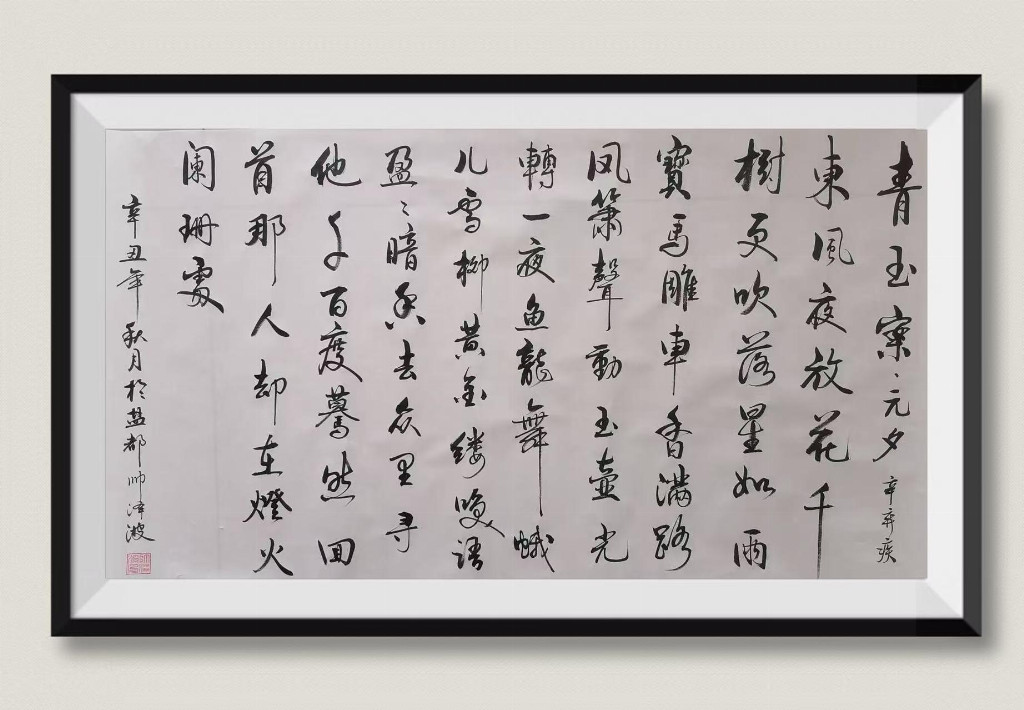 青玉案、元夕 辛弃疾
東風夜放花千
樹更吹落星如雨
寳马雕車香满路
凤箫聲動玉壶光
轉一夜鱼龍舞蛾
儿雪柳黄金缕咲语
盈〻暗香去众里寻
他千百度蓦然回
首那人却在燈火
阑珊處
辛丑年秋月於盐都帅泽波